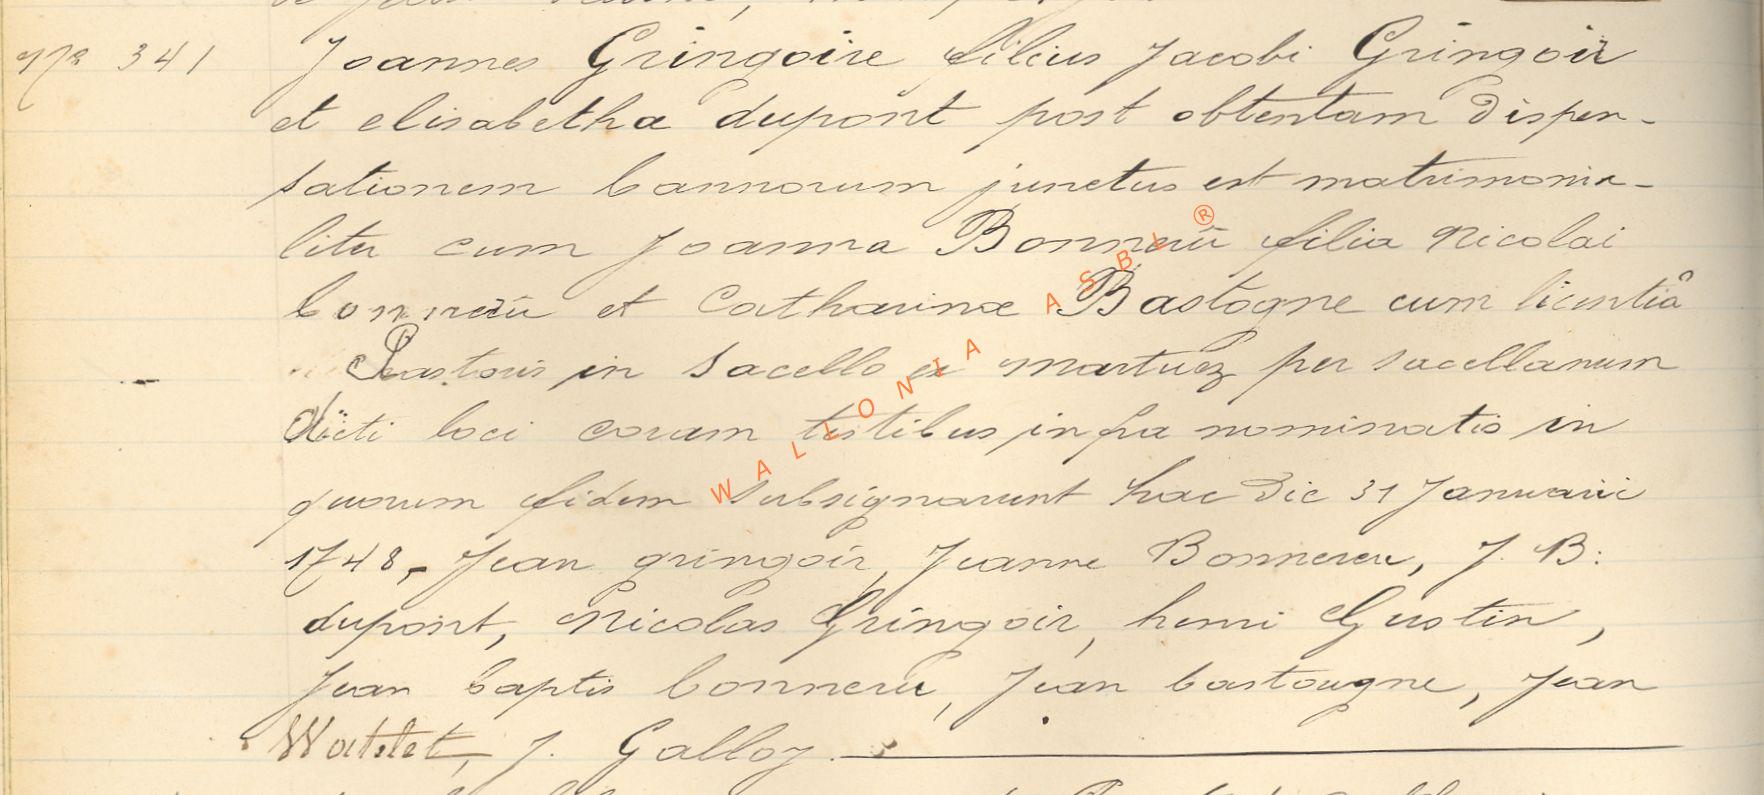 N° 341 Joannes Gringoire filius Jacobi Gringoir
et elisabetha dupont post obtentam dispen-
sationem bannorum junctus est matrimonia-
liter cum Joanna Bonnerü filia Nicolai
bonnerü et Catharinæ Bastogne cum licentiâ
Pastoris in Sacello ex martuez per sacellanum
dicti loci coram testibus infra nominatis in
quorum fidem subsignarunt hac die 31 Januarii
1748, Jean gringoir, Jeanne Bonnereu, J. B:
dupont, Nicolas Gringoir, henri Gustin,
Jean baptis bonneru, Jean bastougne, Jean
Watelet, J. Galloy.
WALLONIA ASBL ®